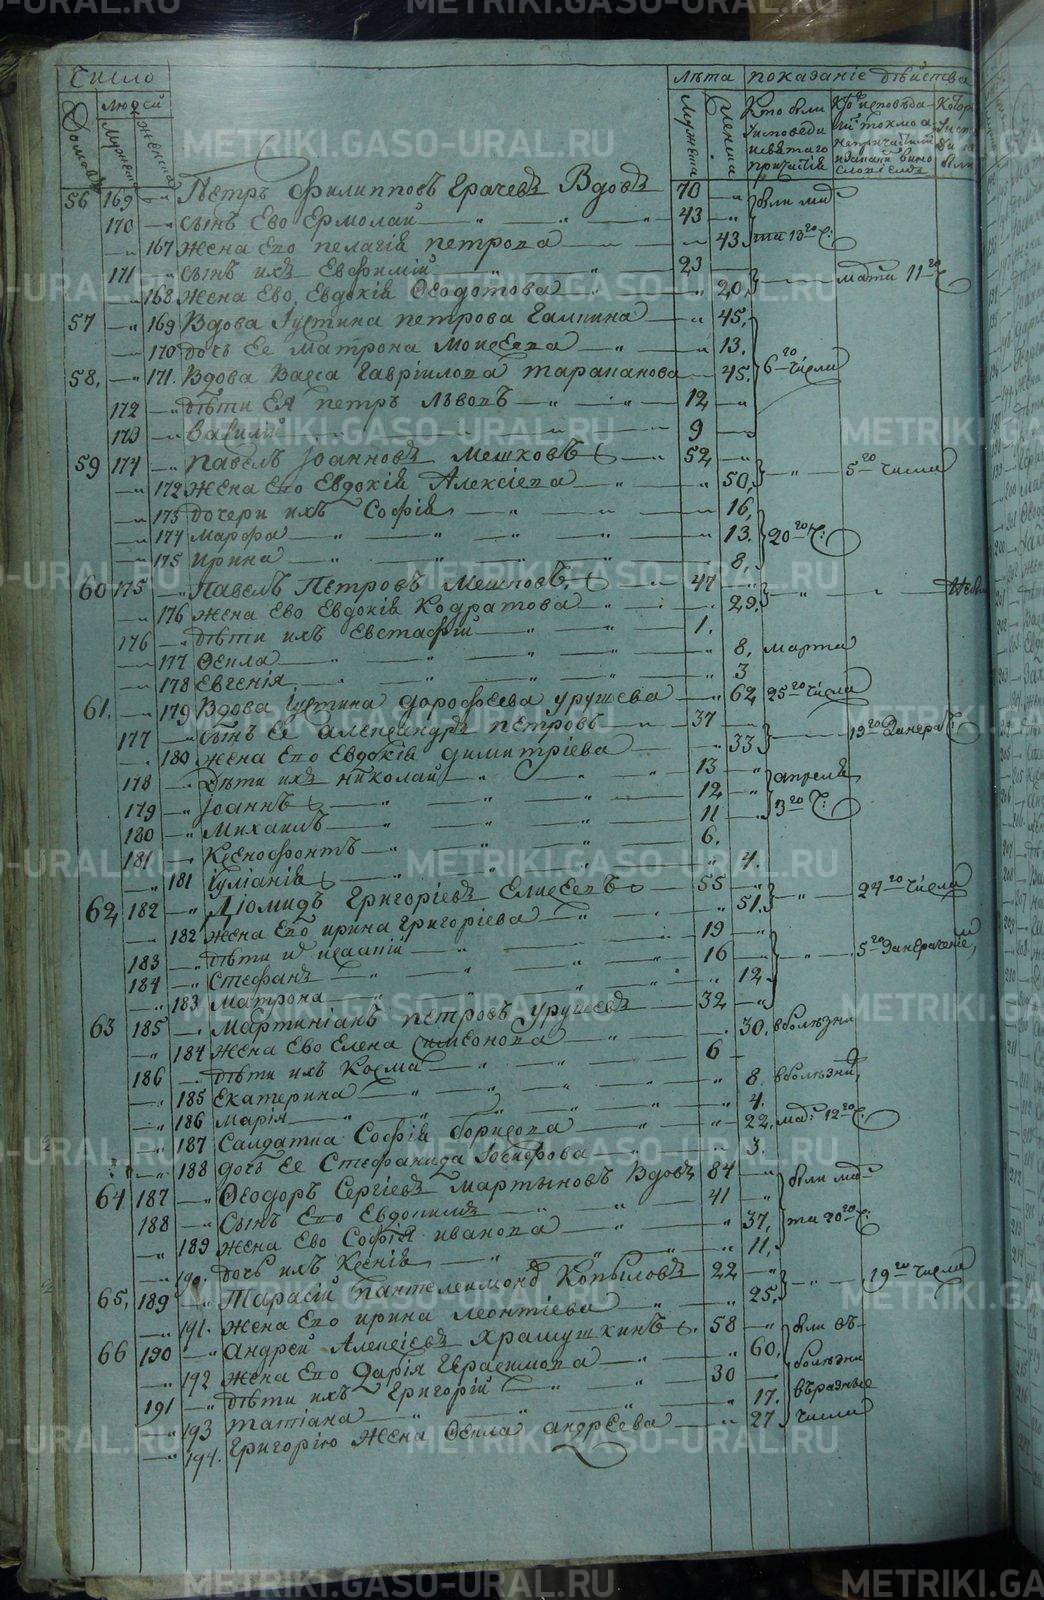 Число
Лѣта показаніе дѣйства
людей
Домовъ Мужеска Женска
Мужеска Женска
Кто были исповеди и святаго причастія
Кто исповеда токмо а не причастили и за каки вино словіемъ
METRIKI.GASO-URAL.RU
56 169 Петръ Филипповъ Грачевъ Вдовъ 70 были мар
170 сынъ Ево Ермолай 43
167 жена Ево пелагія петрова 43 та 13го Ч:
171 сынъ ихъ Евфимій 23 марти 11го
168 Жена Ево Евдокія Ѳеодотова 20
57 169 Вдова Іустина петрова Галкина 45
170 дочь Ее Матрона Моисеева 13
58 171 Вдова Васса Гавріилова тараканова 45 6го числа
172 дѣти Ея петръ Львовъ 12
173 василій 9
59 174 павелъ Іоанновъ Мешковъ 52 5го числа
172 Жена Ево Евдокія Алексіева 50
173 дочери ихъ Софія 16
174 Марфа 13 20го Ч:
175 Ирина 8
60 175 Павелъ Петровъ Мешковъ 47
176 жена Ево Евдокія Кодратова 29
176 дѣти ихъ Евстафій 1
177 Ѳекла 8 марта
178 Евгенія 3
61 179 Вдова Іустина дорофѣева урушева 62 25го числа
177 сынъ Ее александръ петровъ 37 19го Генваря Ч
180 жена Ево Евдокія димитріева 33
178 Дѣти ихъ николай 13 апреля
179 Іоаннъ 12
180 Михаилъ 11 3го Ч:
181 Ксенофонтъ 6
181 Іуліанія 4
62 182 Діомидъ Григоріевъ Елисеевъ 55 24го числа
182 жена Ево ирина Григоріева 51
183 дѣти и исаакій 19 5го
184 Стефанъ 16
183 Матрона 12
63 185 Мартиніанъ петровъ урушевъ 32
184 жена Ево Елена Симеонова 30 вболѣзни
186 дѣти ихъ Косма 6
185 Екатерина 8 вболѣзни,
186 Марія 4
187 Салдатка Софія борисова 22 мар: 12го Ч:
188 дочь Ее Стефанида Іосифова 3
64 187 Ѳеодоръ Сергіевъ мартыновъ Вдовъ 84 были мар
188 Сынъ Ево Евдокимъ 41
189 жена Ево Софія иванова 37 та 20го Ч:
190 дочь ихъ Ксенія 11
65 189 Тарасій Пантелеимоновъ Копыловъ 22 19го числа
191 жена Ево ирина леонтіева 25
66 190 Андрей Алексіевъ Храмушкинъ 58 были въ
192 жена Ево Дарія Герасимова 60 болѣзни
191 дѣти ихъ Григорій 30 въразные
193 татіана 17 числа
194 Григорію Жена Ѳекла андрѣева 27